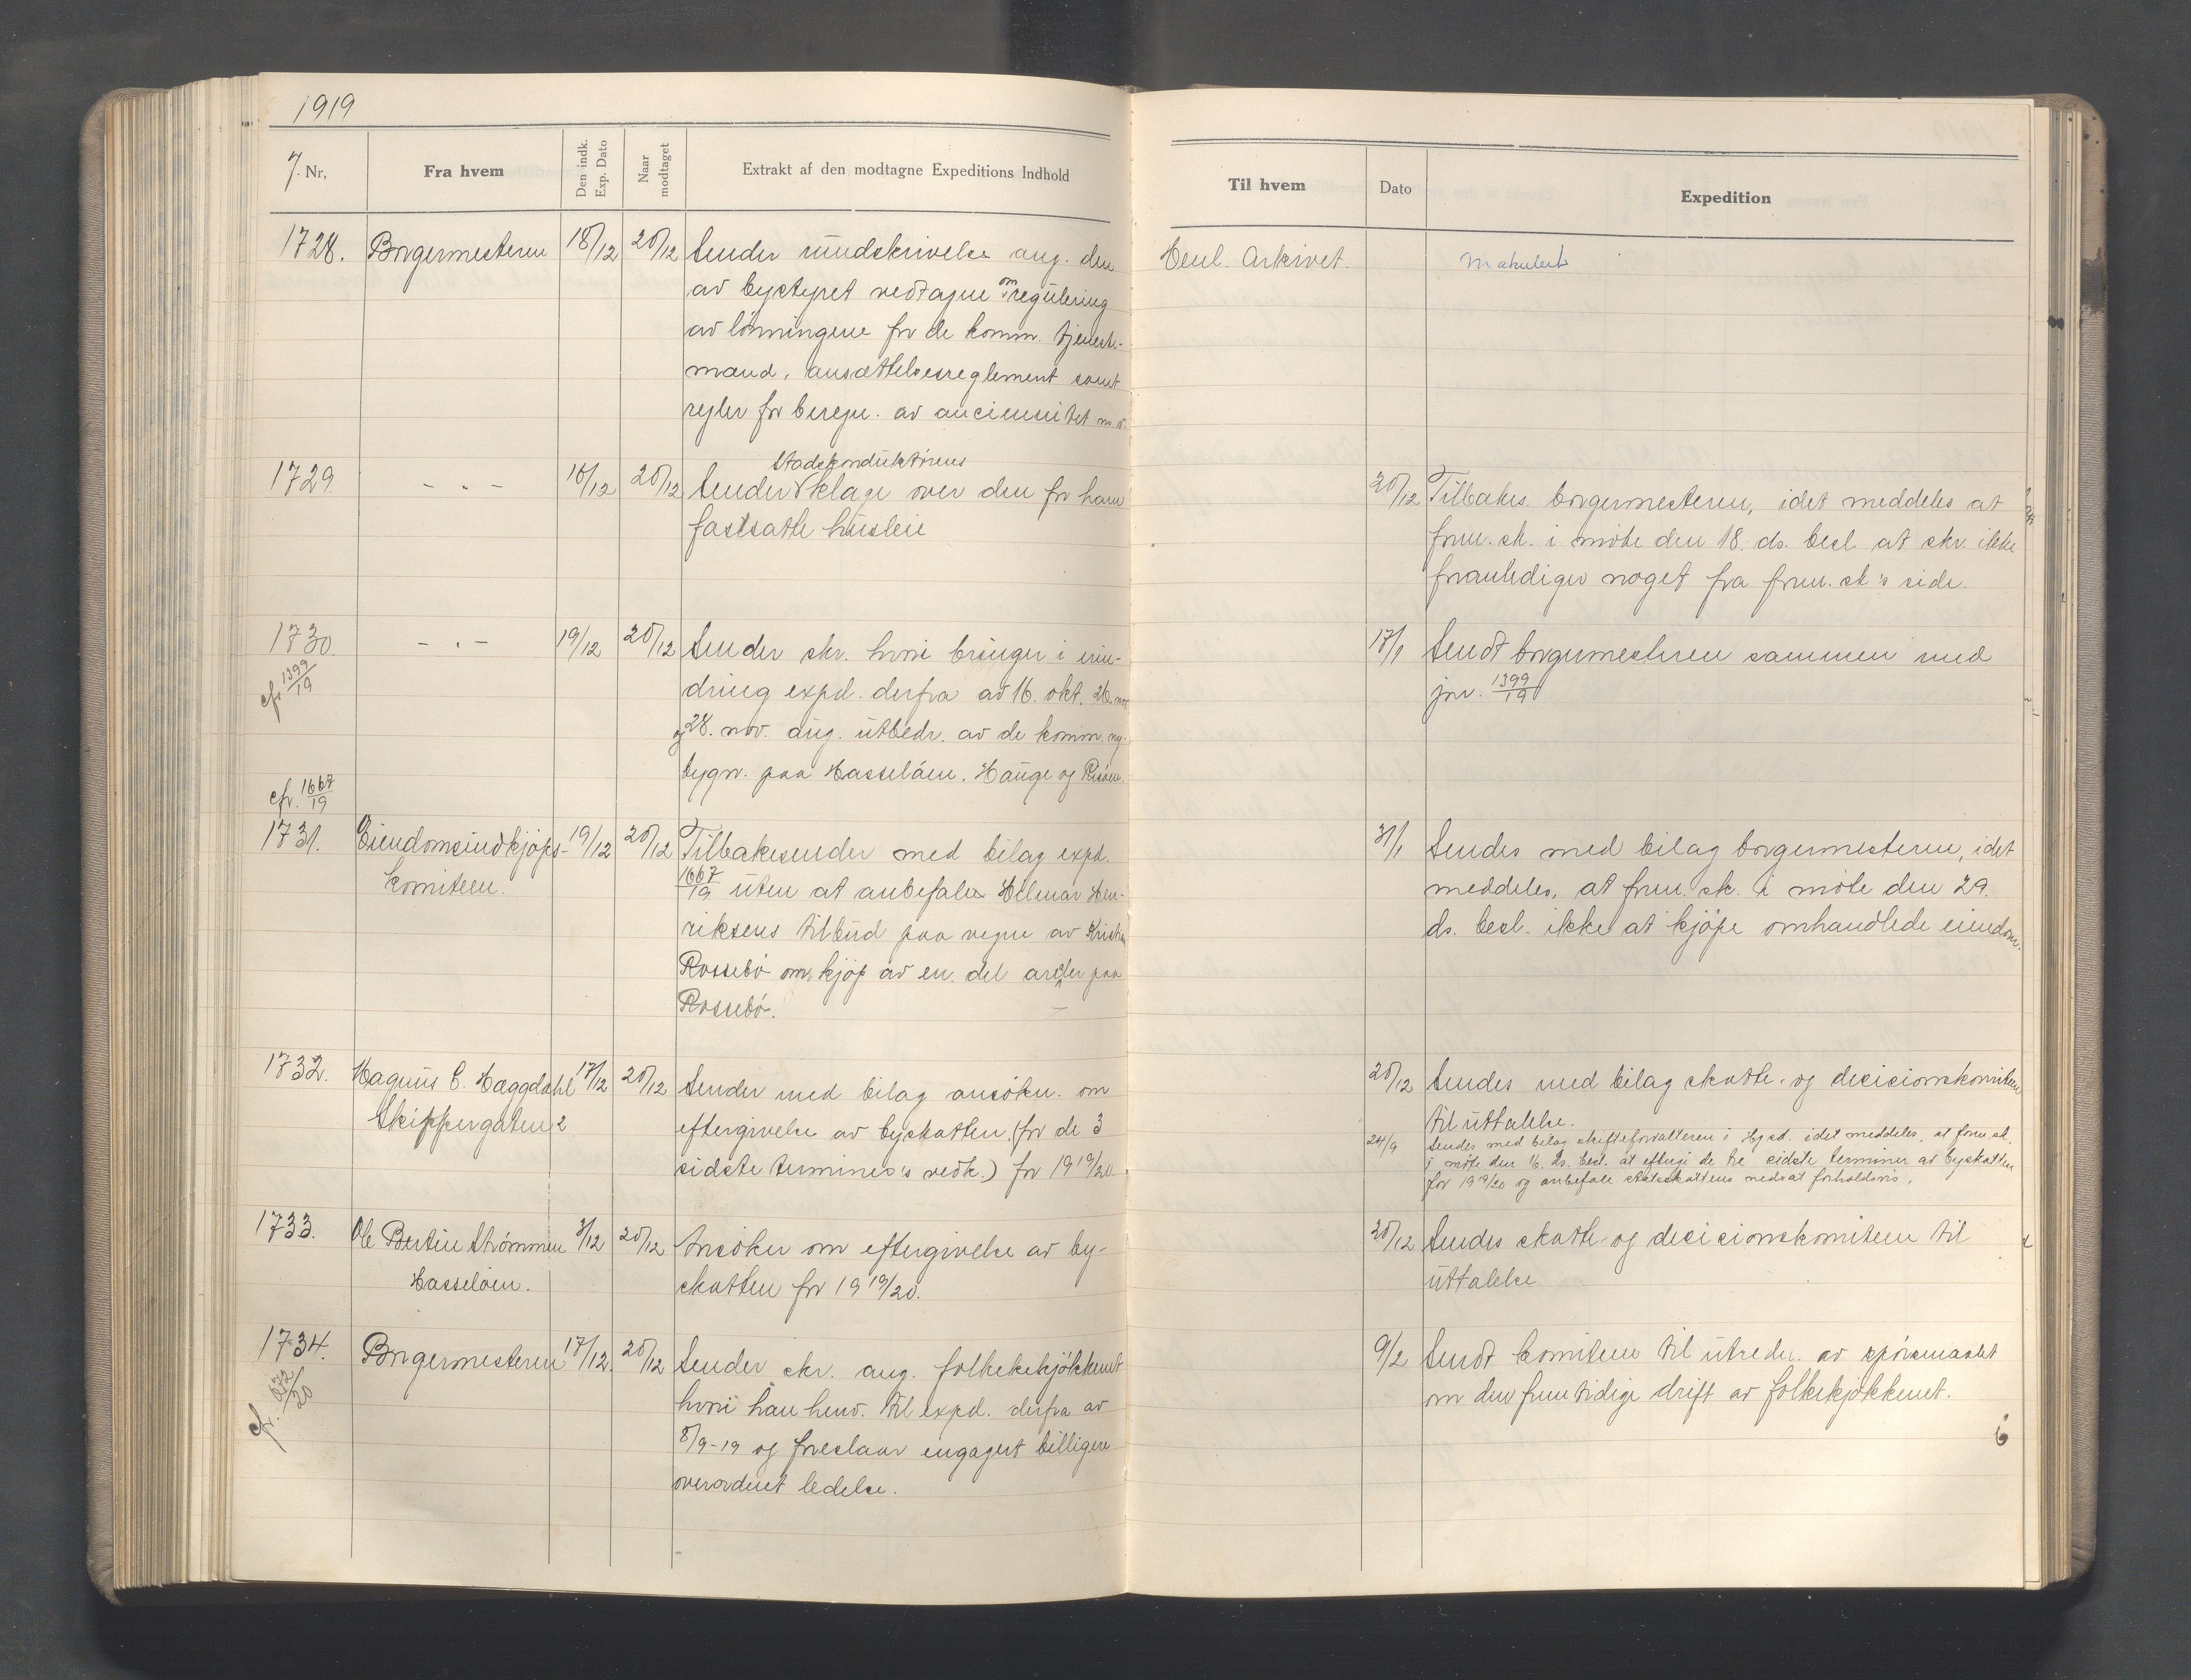 1919
J. Nr.
Fra hvem
Den indk. Exp. Dato
Naar modtaget
Extrakt af den modtagne Expeditions Indhold
1728. Borgermesteren 18/12 20/12 Sender rundskrivelse ang. den
av bystyret vedtagne omregulering
av lönningene for de komm. tjeneste-
mænd, ansættelsesreglement samt
regler for beregn. av anciennitet m.v.
Stadskonduktörens
1729. - " - 16/12 20/12 Sender klage over den for ham
fastsatte husleie
1730. - " - 19/12 20/12 Sender skr. hvori bringer i erin-
cfr 1399/19
dring expd. derfra av 16. okt. 26. nov
og 28. nov. ang. utbedr. av de komm. ny-
bygn. paa Hasselöen, Hauge og Risöen.
cfr. 1667/19
1731. Eiendomsindkjöps- 19/12 20/12 Tilbakesender med bilag expd.
komiteen. 1667/19 uten at anbefale Helmar Hen-
riksens tilbud paa vegne av Kristian
Rossebö om kjöp av en del areler paa
Rossebö.
1732. Magnus C. Haggdahl 17/12 20/12 Sender med bilag ansökn. om
Skippergaten 2 eftergivelse av byskatten (for de 3
sidste termines's vedk.) for 1919/20.
1733. Ole Bertin Strömmen 3/12 20/12 Ansöker om eftergivelse av by-
Hasselöen. skatten for 1919/20.
1734. Borgermesteren 17/12. 20/12 Sender skr. ang. folkekekjökkenet
cfr. 672/20
hvori han henv. til expd. derfra av
8/9-19 og foreslaar engagert billigere
overordnet ledelse.
Til hvem
Dato
Expedition
Henl. Arkivet. Makulert
20/12 Tilbakes. borgermesteren, idet meddeles at
form.sk. i möte den 18. ds. besl. at skr. ikke
foranlediger noget fra form.sk's side.
17/1 Sendt borgermesteren sammen med
jnr. 1399/19
31/1 Sendes med bilag borgermesteren, idet
meddeles, at form.sk. i möte den 29.
ds. besl. ikke at kjöpe omhandlede eiendom.
20/12 Sendes med bilag skatte- og decisionskomiteen
til uttalelse.
24/9 Sendes med bilag skifteforvalteren i Hgsd. idet meddeles, at form.sk.
i möte den 16. ds. besl. at eftergi de tre sidste terminer av byskatten
for 1919/20 og anbefale statsskattens nedsat forholdsvis.
20/12 Sendes skatte- og decisionskomiteen til
uttalelse.
9/2 Sendt komiteen til utredn. av spörsmaalet
om den fremtidige drift av folkekjökkenet.